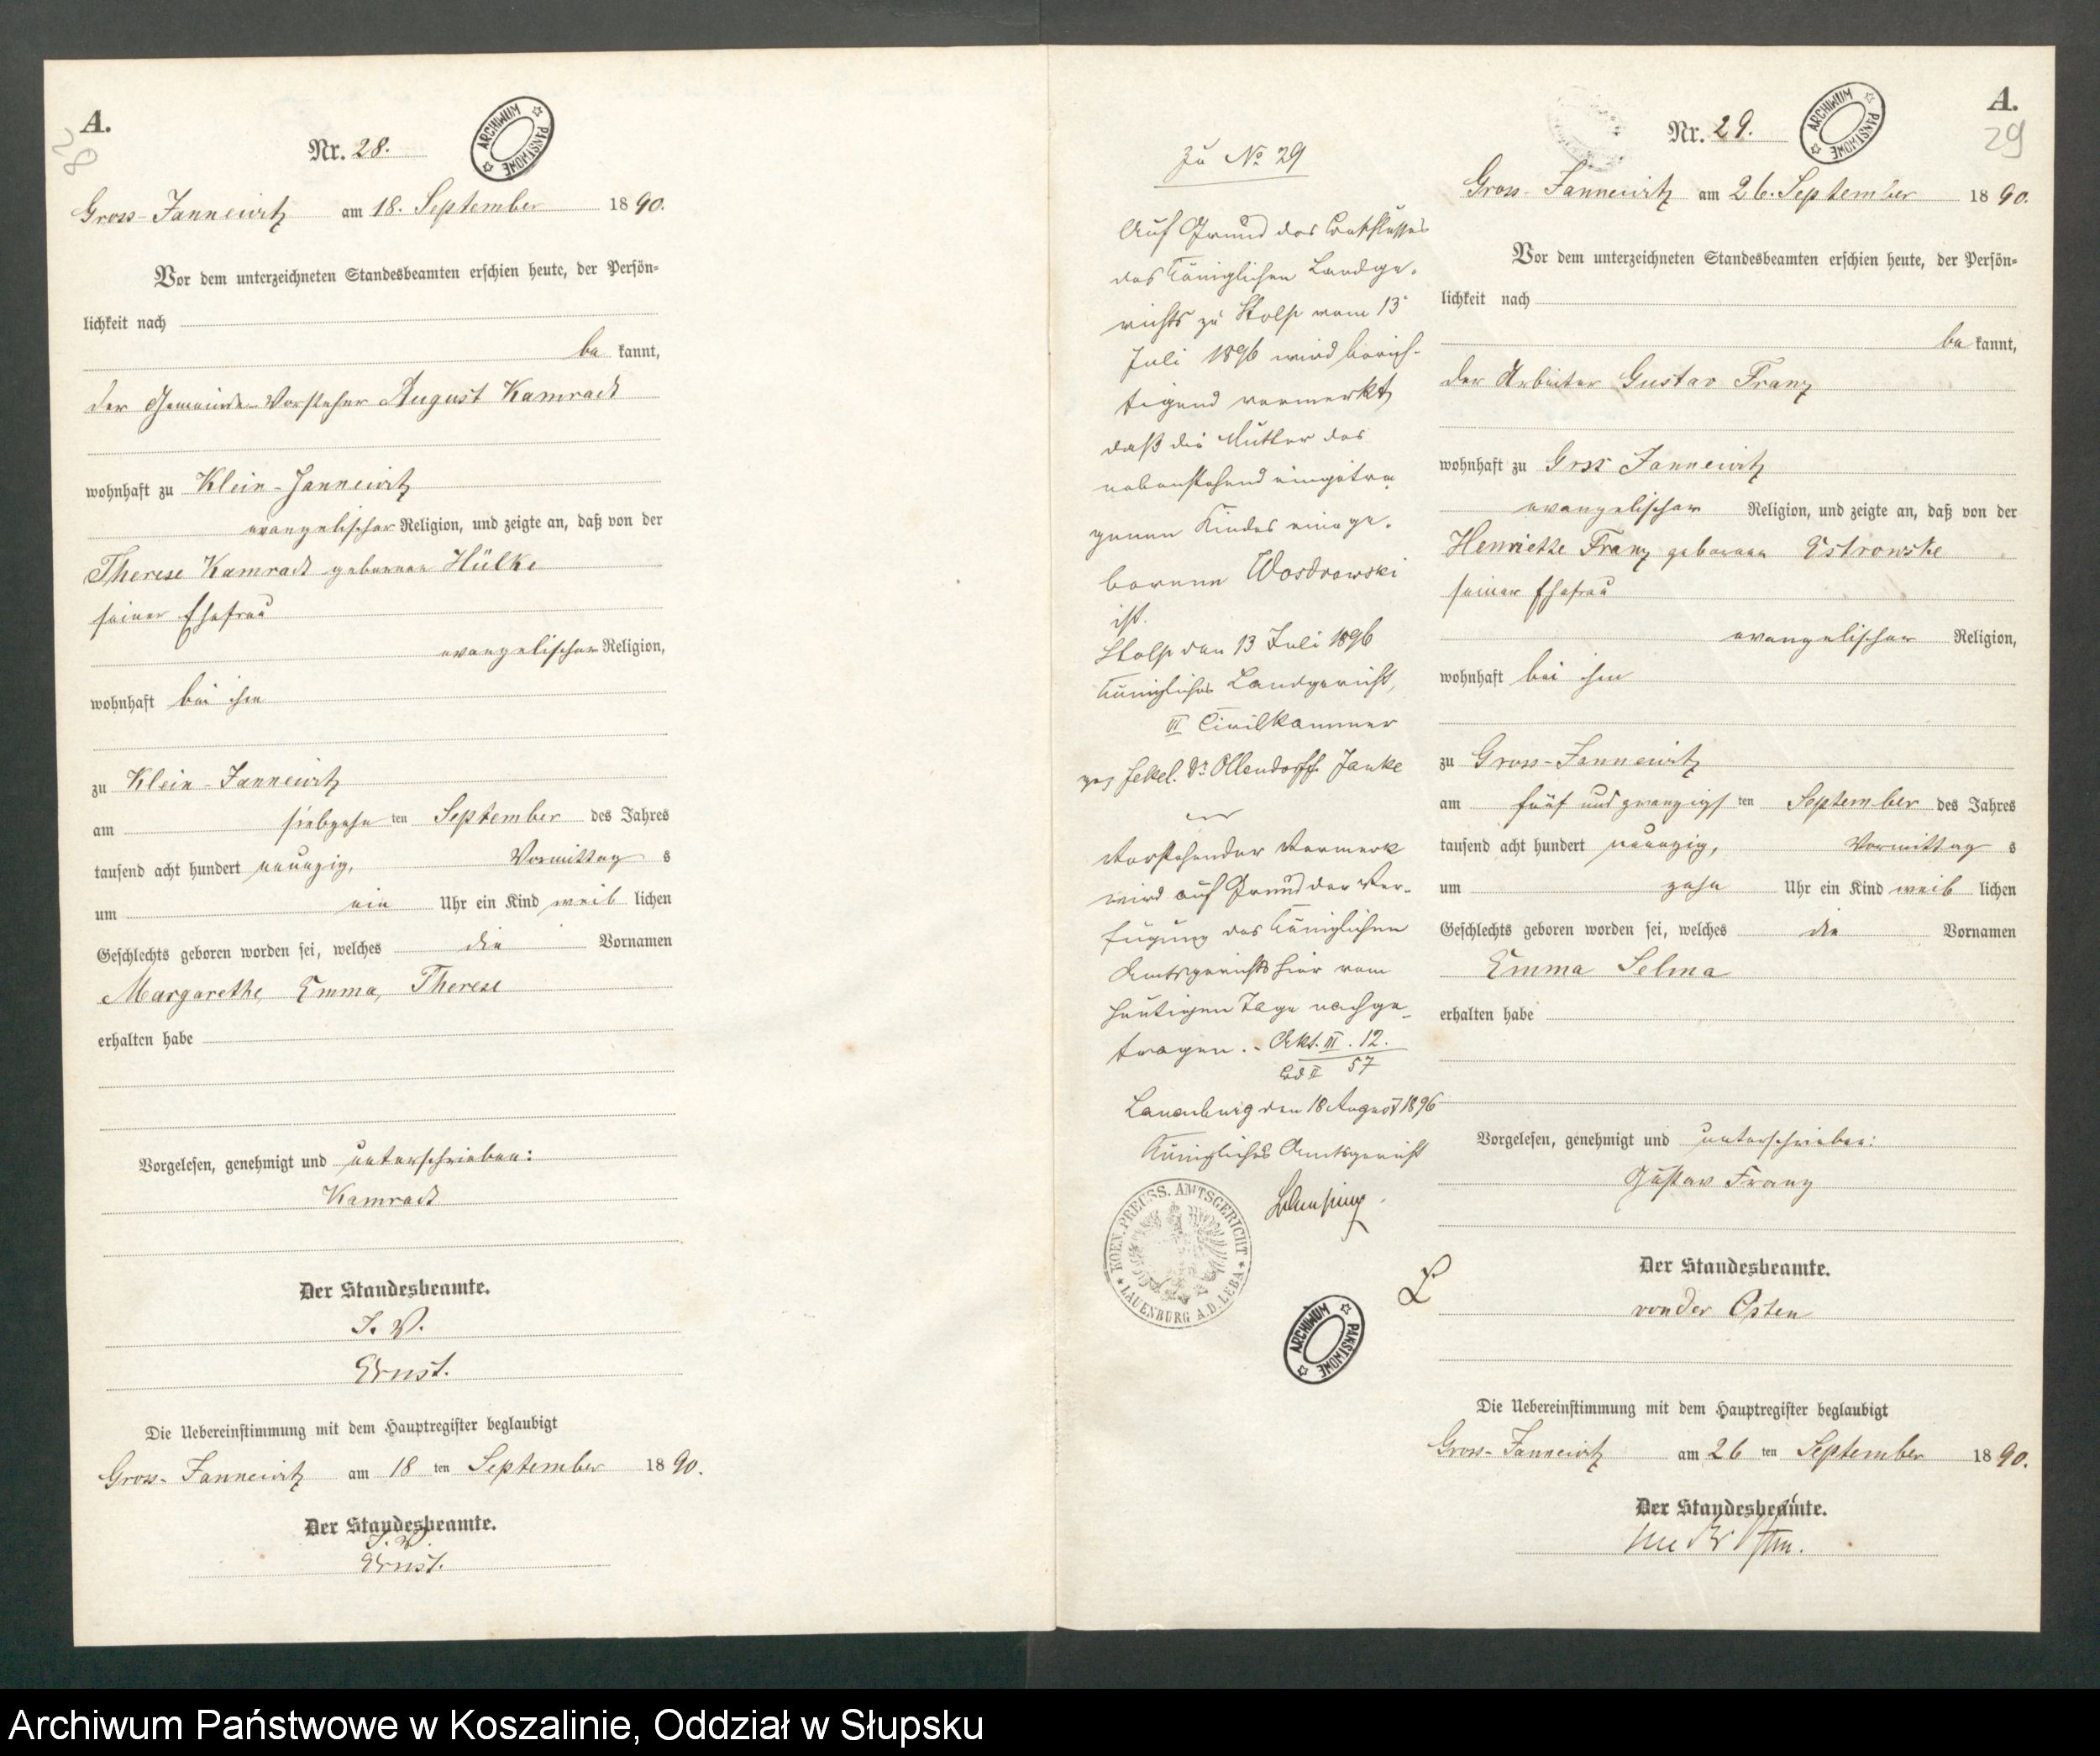 A.
28
Nr. 28.
ARCHIWUM PAŃSTWOWE
Gross-Jannewitz am 18. September 1890.
Vor dem unterzeichneten Standesbeamten erschien heute, der Persön=
lichkeit nach
be kannt,
der Gemeinde-Vorsteher August Kamradt
wohnhaft zu Klein-Jannewitz
evangelischer Religion, und zeigte an, daß von der
Therese Kamradt geborenen Hülke
seiner Ehefrau
evangelischer Religion,
wohnhaft bei ihm
zu Klein-Jannewitz
am siebzehn ten September des Jahres
tausend acht hundert neunzig, Vormittag s
um ein Uhr ein Kind weib lichen
Geschlechts geboren worden sei, welches die Vornamen
Margarethe, Emma, Therese
erhalten habe
Vorgelesen, genehmigt und unterschrieben:
Kamradt
Der Standesbeamte.
J. V.
Ernst.
Die Uebereinstimmung mit dem Hauptregister beglaubigt
Gross-Jannewitz am 18 ten September 1890.
Der Standesbeamte.
J. V.
Ernst.
Zu No 29
Auf Grund des Beschlusses
des Königlichen Landge-
richts zu Stolp vom 13
Juli 1896 wird berich-
tigend vermerkt,
daß die Mutter des
nebenstehend eingetra-
genen Kindes eine ge-
borene Wosdrowski
ist.
Stolp den 13 Juli 1896
Königliches Landgericht,
III Civilkammer
gez Jekel. Dr Ollendorff. Janke
Vorstehender Vermerk
wird auf Grund der Ver-
fügung des Königlichen
Amtsgerichts hier vom
heutigen Tage nachge-
tragen. - Akt. III. 12.
57
Lauenburg den 18 August 1896
Königliches Amtsgericht
KOEN. PREUSS. AMTSGERICHT
LAUENBURG A.D. LEBA
ARCHIWUM PAŃSTWOWE
A.
29
Nr. 29.
ARCHIWUM PAŃSTWOWE
Gross-Jannewitz am 26. September 1890.
Vor dem unterzeichneten Standesbeamten erschien heute, der Persön=
lichkeit nach
be kannt,
der Arbeiter Gustav Franz
wohnhaft zu Gross Jannewitz
evangelischer Religion, und zeigte an, daß von der
Henriette Franz geborenen Ostrowske
seiner Ehefrau
evangelischer Religion,
wohnhaft bei ihm
zu Gross-Jannewitz
am fünf und zwanzigs ten September des Jahres
tausend acht hundert neunzig, Vormittag s
um zehn Uhr ein Kind weib lichen
Geschlechts geboren worden sei, welches die Vornamen
Emma Selma
erhalten habe
Vorgelesen, genehmigt und unterschrieben:
Gustav Franz
Der Standesbeamte.
von der Osten
Die Uebereinstimmung mit dem Hauptregister beglaubigt
Gross-Jannewitz am 26 ten September 1890.
Der Standesbeamte.
von der Osten.
Archiwum Państwowe w Koszalinie, Oddział w Słupsku